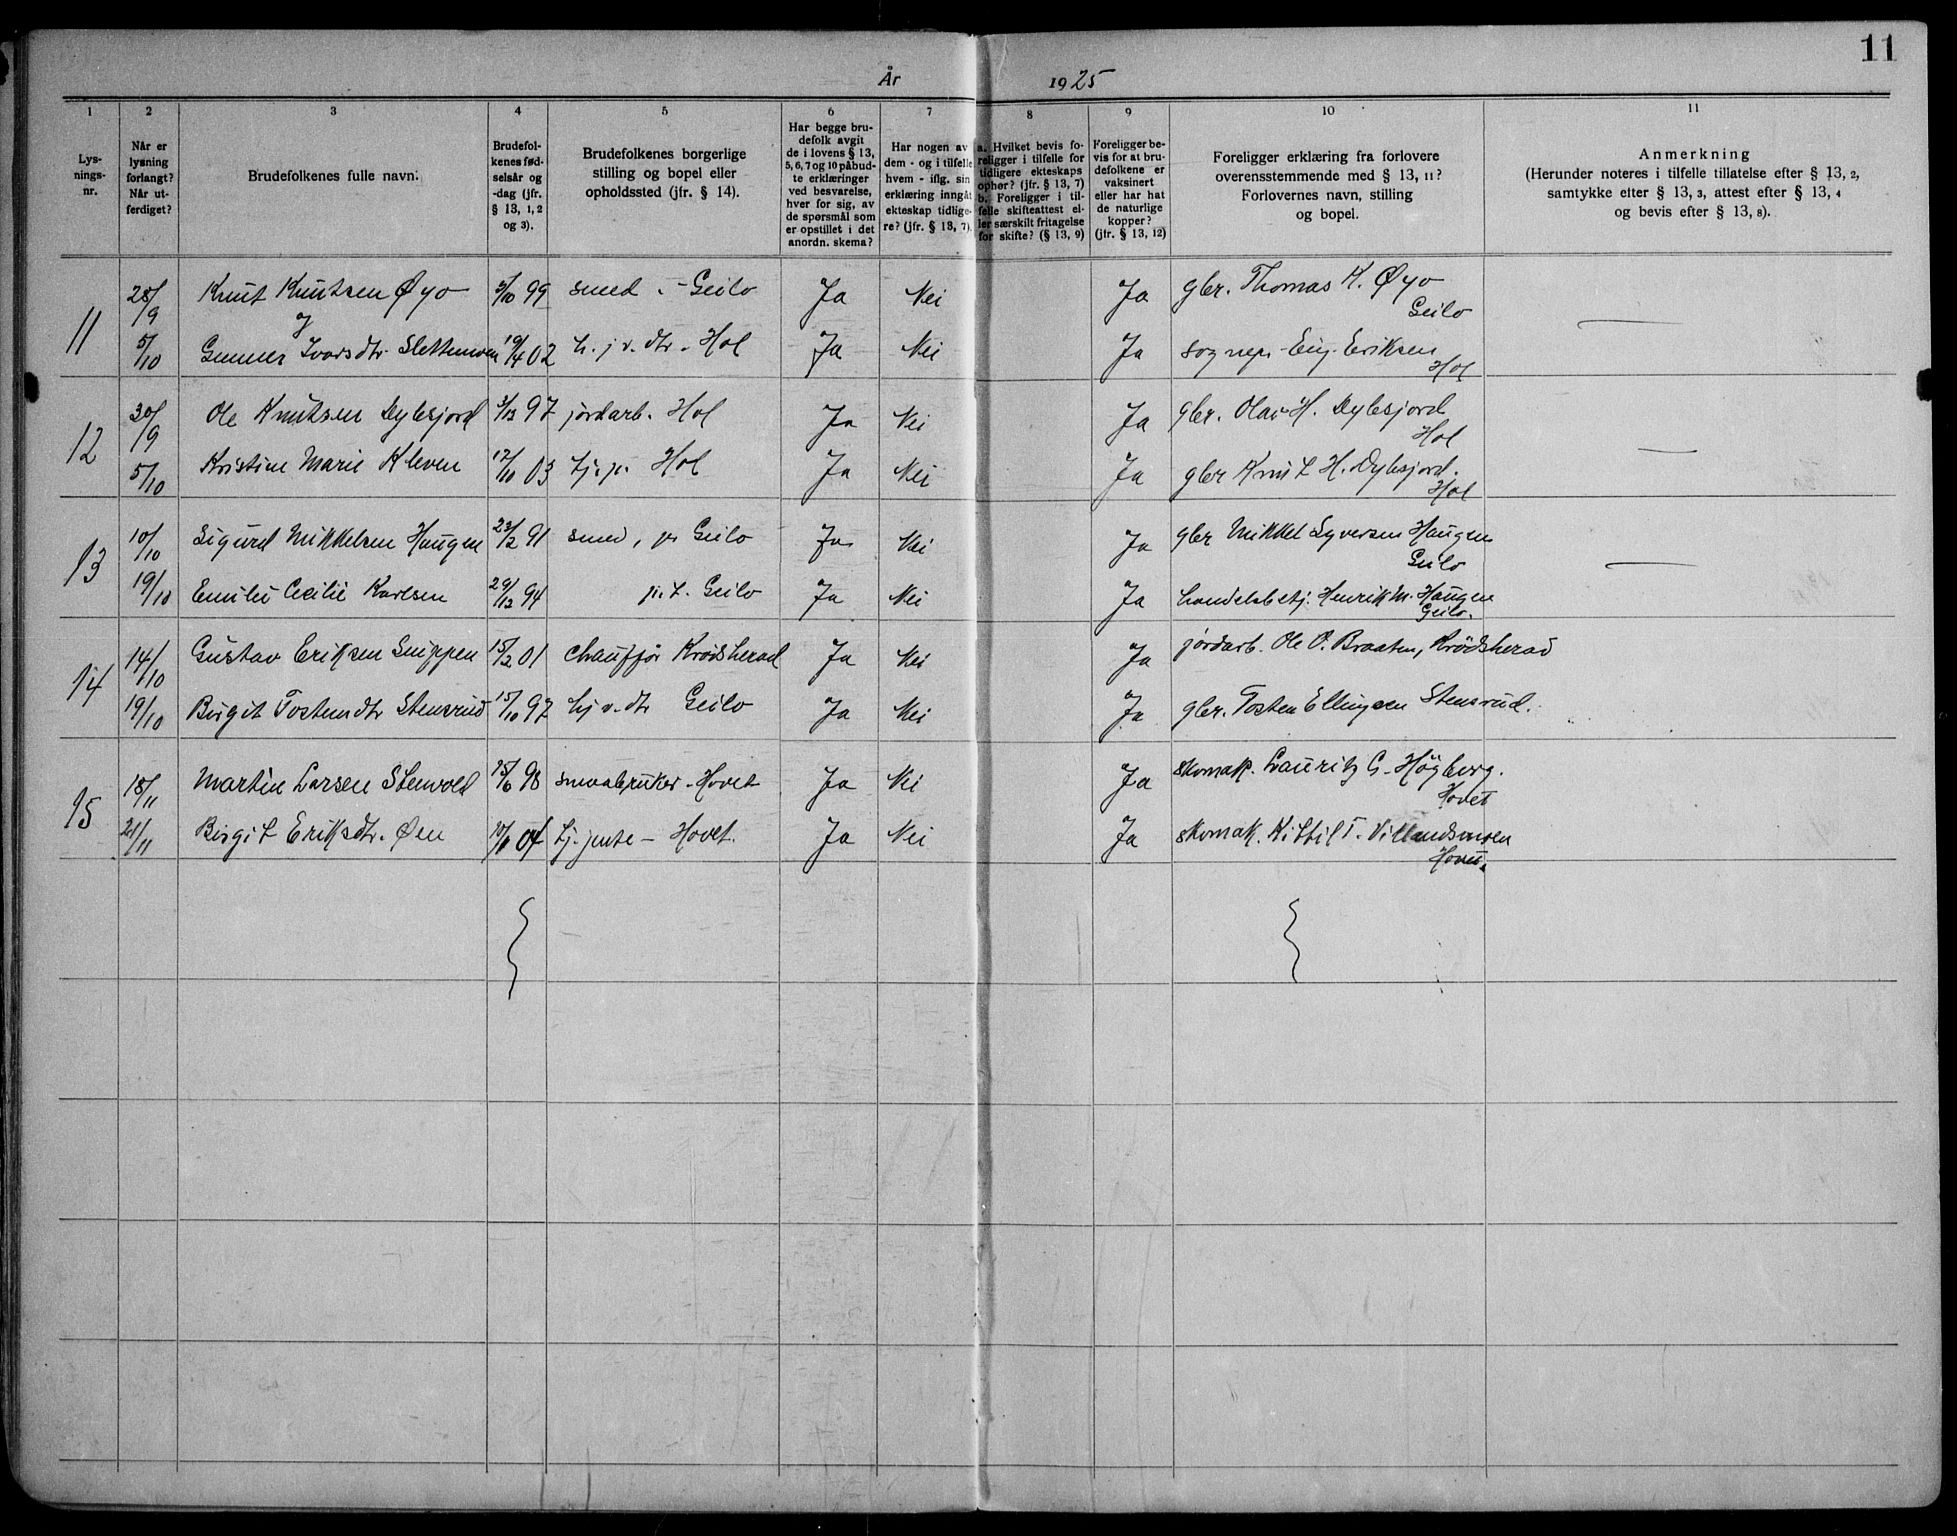 11
År 1925
1 2 3 4 5 6 7 8 9 10 11
Lys-
nings-
nr.
Når er
lysning
forlangt?
Når ut-
ferdiget?
Brudefolkenes fulle navn.
Brudefol-
kenes fød-
selsår og
-dag (jfr.
§ 13, 1, 2
og 3).
Brudefolkenes borgerlige
stilling og bopel eller
opholdssted (jfr. § 14).
Har begge bru-
defolk avgit
de i lovens § 13,
5, 6, 7 og 10 påbud-
te erklæringer
ved besvarelse,
hver for sig, av
de spørsmål som
er opstillet i det
anordn. skema?
Har nogen av
dem - og i tilfelle
hvem - iflg. sin
erklæring inngåt
ekteskap tidlige-
re? (jfr. § 13, 7).
a. Hvilket bevis fo-
religger i tilfelle for
tidligere ekteskaps
ophør? (jfr. § 13, 7)
b. Foreligger i til-
felle skifteattest el-
ler særskilt fritagelse
for skifte? (§ 13, 9)
Foreligger be-
vis for at bru-
defolkene er
vaksinert
eller har hat
de naturlige
kopper?
(jfr. § 13, 12)
Foreligger erklæring fra forlovere
overensstemmende med § 13, 11?
Forlovernes navn, stilling
og bopel.
Anmerkning
(Herunder noteres i tilfelle tillatelse efter § 13, 2,
samtykke efter § 13, 3, attest efter § 13, 4
og bevis efter § 13, 8).
11 28/9 Knut Knutsen Øyo 5/10 99 smed - Geilo Ja Nei Ja gbr. Thomas K. Øyo
Geilo
5/10 Gunner Ivarsdtr. Slettemoen 19/4 02 h. j v. dtr - Hol Ja Nei Ja sognepr - Eriksen
Hol
12 30/9 Ole Knutsen Dybsjord 97 jordarb. Hol Ja Nei Ja gbr. Olav H. Dybsjord
Hol
5/10 Kristine Marie Kleven 17/10 03 tj. p. Hol Ja Nei Ja gbr Knut H. Dybsjord.
Hol
13 10/10 Sigurd Mikkelsen Haugen 23/2 91 smed, Geilo Ja Nei Ja gbr Mikkel Syversen Haugen
Geilo
19/10 Emilie Cecilie Karlsen 29/12 94 p. t. Geilo Ja Nei Ja handelsbetj. Henrik M. Haugen
Geilo.
14 14/10 Gustav Eriksen Snippen 15/2 01 chauffør Krødsherad Ja Nei Ja jordarb. Ole O. Braaten, Krödsherad
19/10 Birgit Tostendtr Stensrud 15/10 97 hj v. dtr Geilo Ja Nei Ja gbr. Tosten Ellingsen Stensrud.
15 18/11 Martin Larsen Stenvold 15/6 98 smaabruker - Hovet Ja Nei Ja skomak. Lauritz G. Högberg.
Hovet
21/11 Birgit Eriksdtr. Øen 04 tj. jente - Hovet. Ja Nei Ja skomak. Kittil T. Villandsmoen
Hovet.